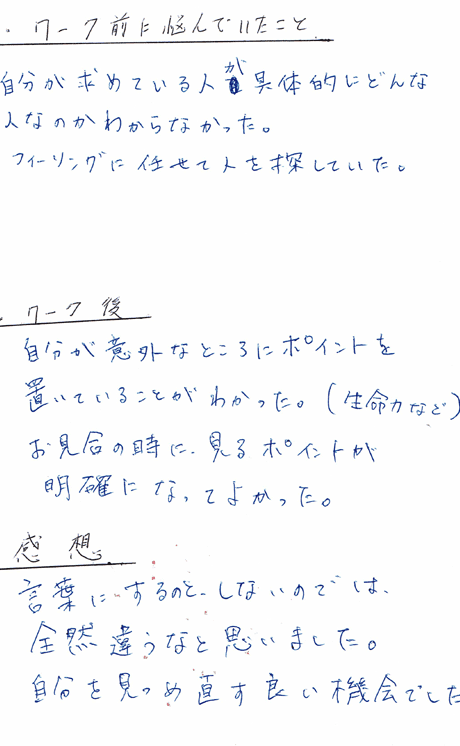 ・ワーク前に悩んでいたこと
自分が求めている人が具体的にどんな
人なのかわからなかった。
フィーリングに任せて人を探していた。
・ワーク後
自分が意外なところにポイントを
置いていることがわかった。(生命力など)
お見合の時に、見るポイントが
明確になってよかった。
感想
言葉にするのと、しないのでは、
全然違うなと思いました。
自分を見つめ直す良い機会でした